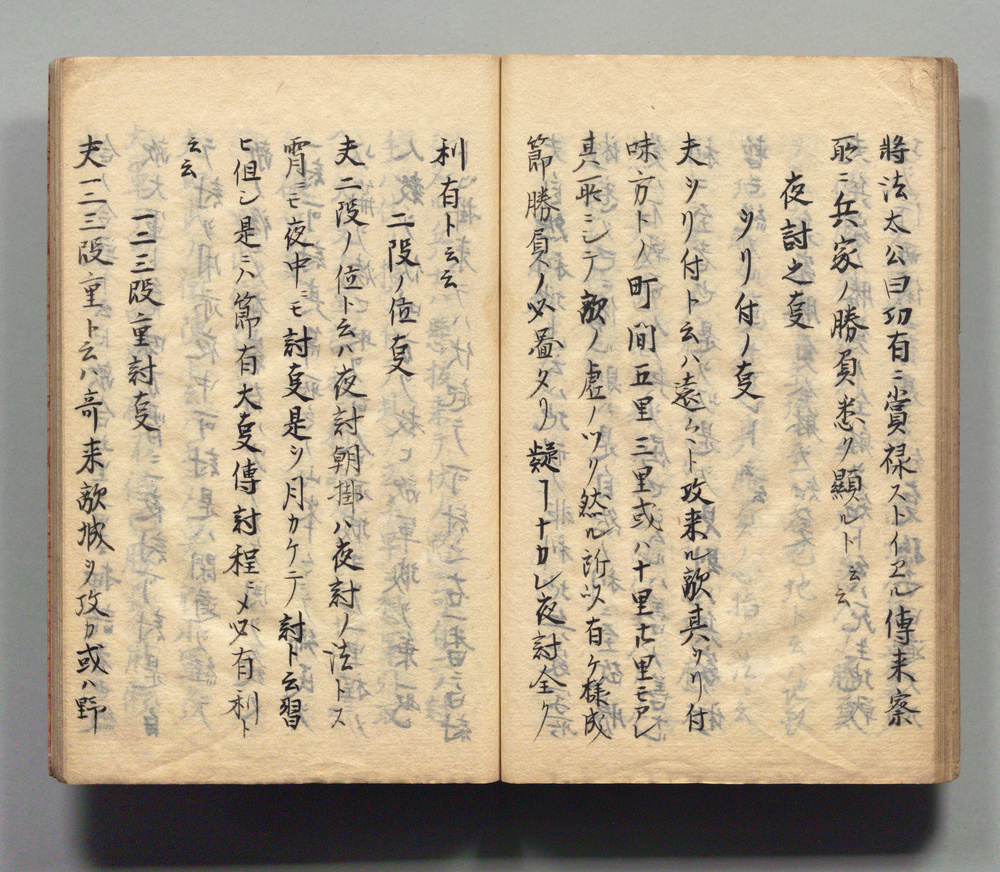 將法太公曰功有ニ賞禄ストイヱル傳来察
所ニ兵家ノ勝負悉ク顯ルト云云
夜討之㕝
ツリ付ノ㕝
夫ツリ付ト云ハ遠クヘト攻来ル敵其ツリ付
味方トノ町間五里三里或ハ十里廿里モアレ
其所ニシテ敵ノ虚ノツリ然ル所以有ケ様成
節勝負ノ必啚タリ疑フヿナカレ夜討全ク
利有ト云云
二段ノ位㕝
夫二段ノ位ト云ハ夜討朝掛ハ夜討ノ法トス
宵ニモ夜中ニモ討㕝是ヲ月カケニテ討ト云習
ヒ但シ是ニハ節有大㕝傳討程ニメ必有利ト
云云
一二三段重討㕝
夫一二三段重ト云ハ奇来敵城ヲ攻カ或ハ野